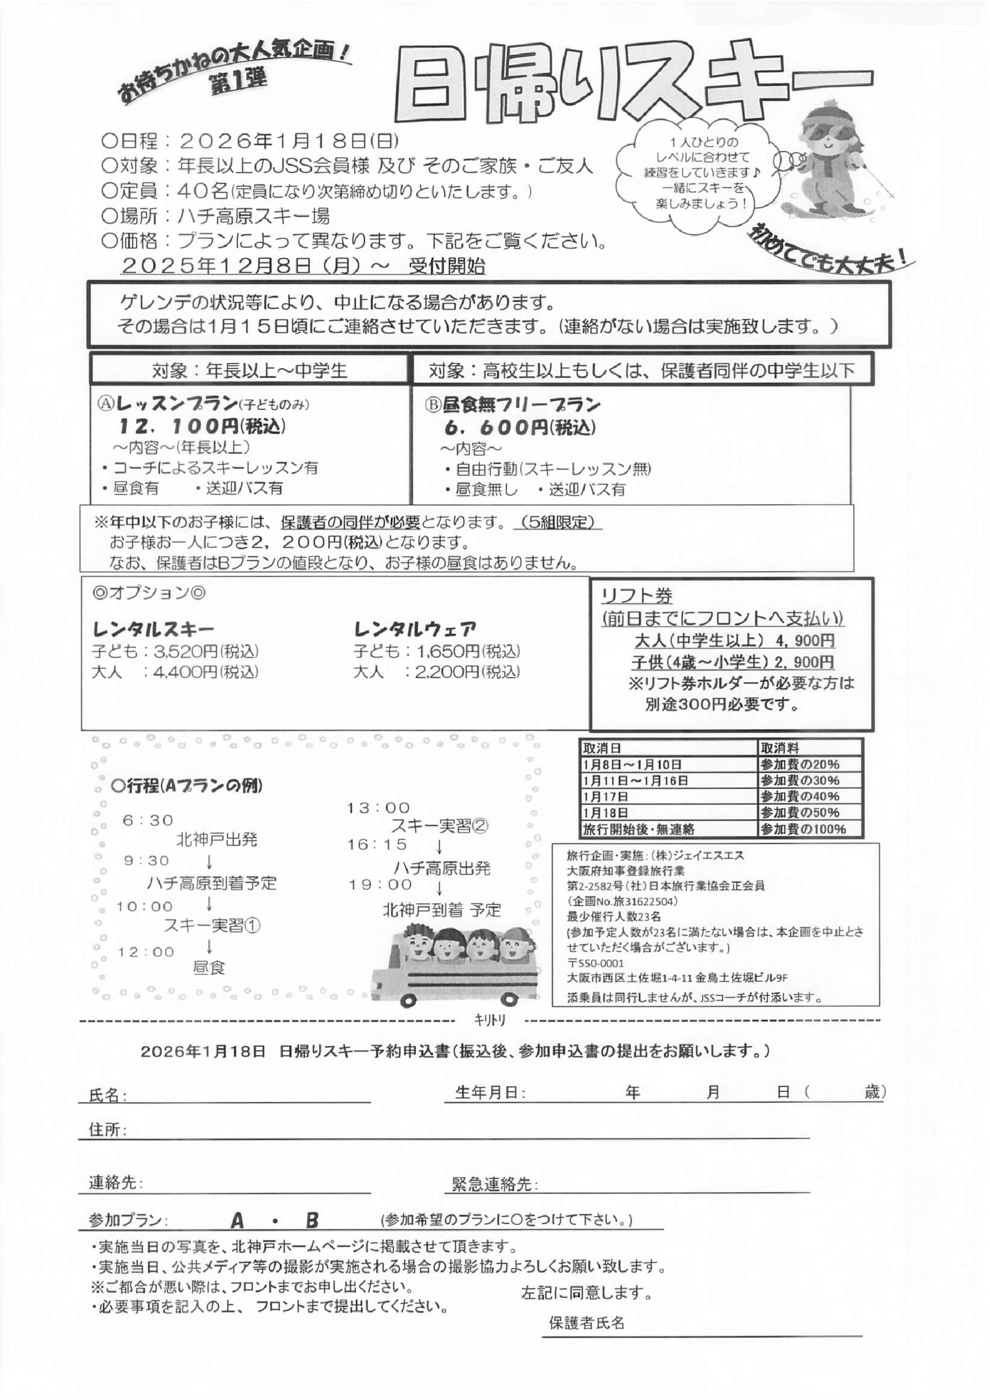 お待ちかねの大人気企画！
第1弾
日帰りスキー
〇日程：２０２６年１月１８日(日)
〇対象：年長以上のJSS会員様 及び そのご家族・ご友人
〇定員：４０名(定員になり次第締め切りといたします。)
〇場所：ハチ高原スキー場
〇価格：プランによって異なります。下記をご覧ください。
２０２５年１２月８日（月）～　受付開始
１人ひとりの
レベルに合わせて
練習をしていきます♪
一緒にスキーを
楽しみましょう！
初めてでも大丈夫！
ゲレンデの状況等により、中止になる場合があります。
その場合は１月１５日頃にご連絡させていただきます。(連絡がない場合は実施致します。)
対象：年長以上～中学生
Ⓐレッスンプラン(子どものみ)
１２．１００円(税込)
～内容～(年長以上)
・コーチによるスキーレッスン有
・昼食有　　・送迎バス有
対象：高校生以上もしくは、保護者同伴の中学生以下
Ⓑ昼食無フリープラン
６．６００円(税込)
～内容～
・自由行動(スキーレッスン無)
・昼食無し　・送迎バス有
※年中以下のお子様には、保護者の同伴が必要となります。（５組限定）
お子様お一人につき２，２００円(税込)となります。
なお、保護者はBプランの値段となり、お子様の昼食はありません。
◎オプション◎
レンタルスキー
子ども：3,520円(税込)
大人　：4,400円(税込)
レンタルウェア
子ども：1,650円(税込)
大人　：2,200円(税込)
リフト券
(前日までにフロントへ支払い)
大人(中学生以上) 4,900円
子供(4歳～小学生) 2,900円
※リフト券ホルダーが必要な方は
別途300円必要です。
〇行程(Aプランの例)
６：３０
北神戸出発
９：３０　↓
ハチ高原到着予定
１０：００　↓
スキー実習①
１２：００　↓
昼食
１３：００
スキー実習②
１６：１５　↓
ハチ高原出発
１９：００　↓
北神戸到着 予定
取消日　取消料
1月8日～1月10日　参加費の20%
1月11日～1月16日　参加費の30%
1月17日　参加費の40%
1月18日　参加費の50%
旅行開始後・無連絡　参加費の100%
旅行企画・実施：(株)ジェイエスエス
大阪府知事登録旅行業
第2-2582号(社)日本旅行業協会正会員
(企画No.旅31622504)
最少催行人数23名
(参加予定人数が23名に満たない場合は、本企画を中止とさ
せていただく場合がございます。)
〒550-0001
大阪市西区土佐堀1-4-11 金鳥土佐堀ビル9F
添乗員は同行しませんが、JSSコーチが付添います。
キリトリ
2026年1月18日　日帰りスキー予約申込書(振込後、参加申込書の提出をお願いします。)
氏名：　生年月日：　年　月　日（　歳）
住所：
連絡先：　緊急連絡先：
参加プラン：　A　・　B　(参加希望のプランに〇をつけて下さい。)
・実施当日の写真を、北神戸ホームページに掲載させて頂きます。
・実施当日、公共メディア等の撮影が実施される場合の撮影協力よろしくお願い致します。
※ご都合が悪い際は、フロントまでお申し出ください。
・必要事項を記入の上、 フロントまで提出してください。
左記に同意します。
保護者氏名